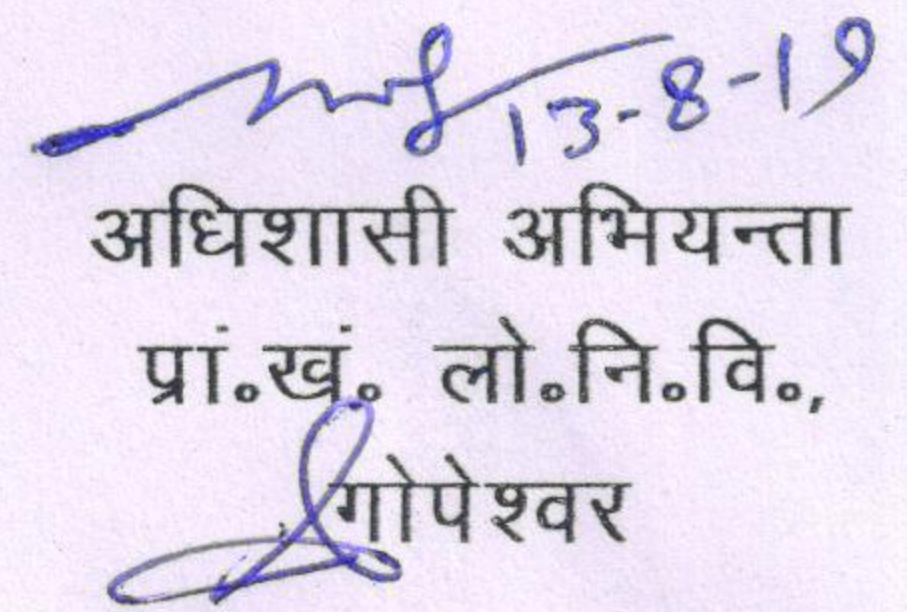 13-8-19
अधिशासी अभियन्ता
प्रां.खं. लो.नि.वि.,
गोपेश्वर